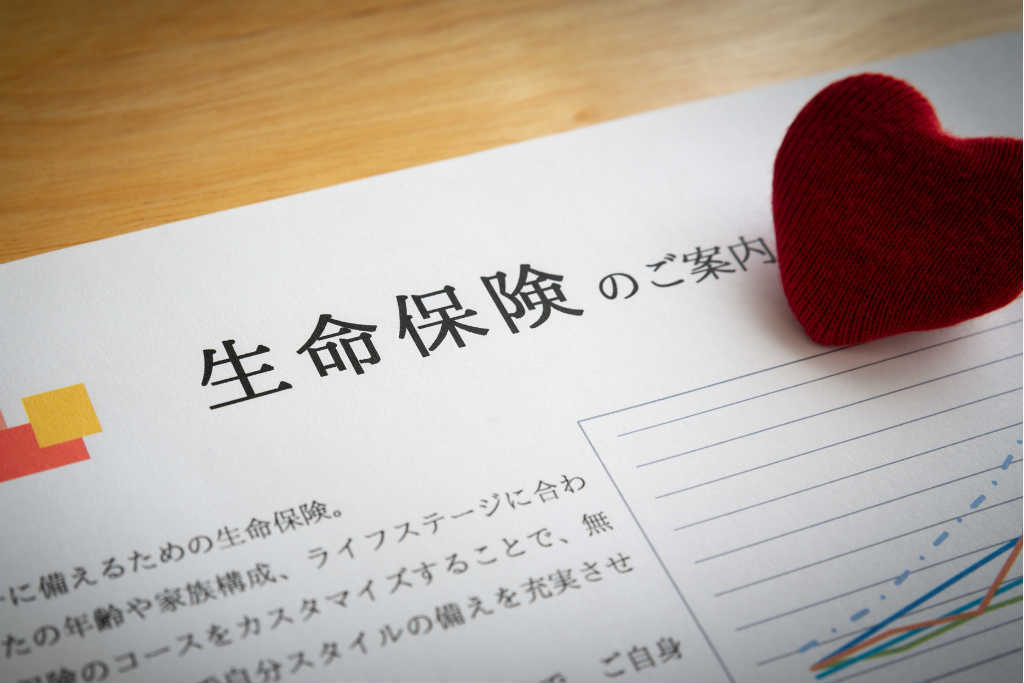 生命保険のご案内
に備えるための生命保険。
たの年齢や家族構成、ライフステージに合わ
保険のコースをカスタマイズすることで、無
自分スタイルの備えを充実させ
ご自身